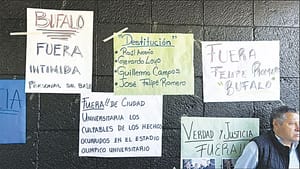 BUFALO
FUERA
INTIMIDA
PERSONAL DEL BASE
"Destitución"
Raúl Arenio
Gerardo Loyo
Guillermo Campos
José Felipe Romero
FUERA
FELIPE ROMERO
"BUFALO"
CIA
FUERA!! DE CIUDAD
UNIVERSITARIA LOS
CULPABLES DE LOS HECHOS
OCURRIDOS EN EL ESTADIO
OLIMPICO UNIVERSITARIO
VERDAD Y JUSTICIA
FUERA